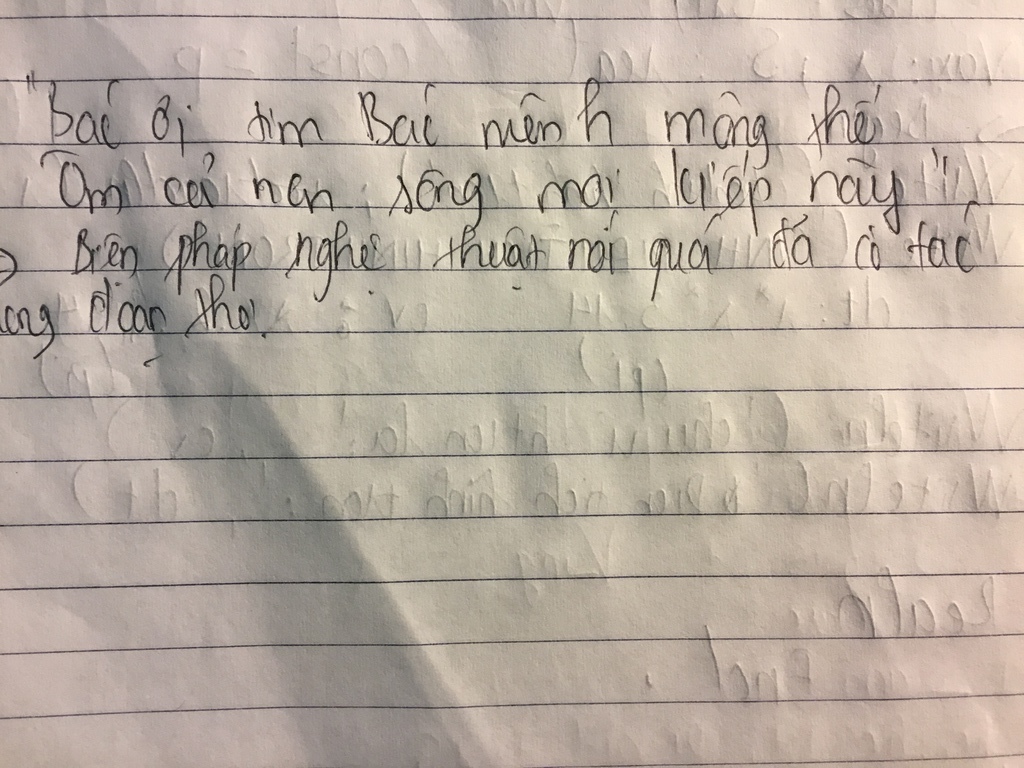 "Bác ơi tim Bác mênh mông thế
Ôm cả non sông mọi kiếp này"
Biện pháp nghệ thuật nói quá đã có tác
đoạn thơ.